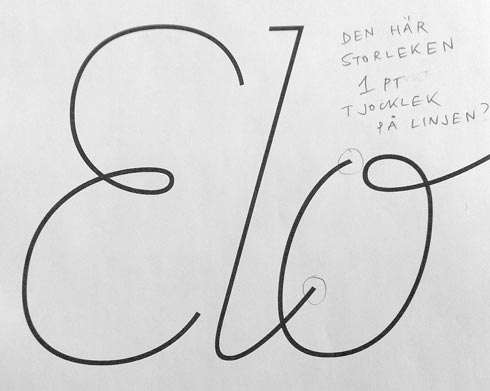 Elo
DEN HÄR
STORLEKEN
1 PT
TJOCKLEK
PÅ LINJEN?